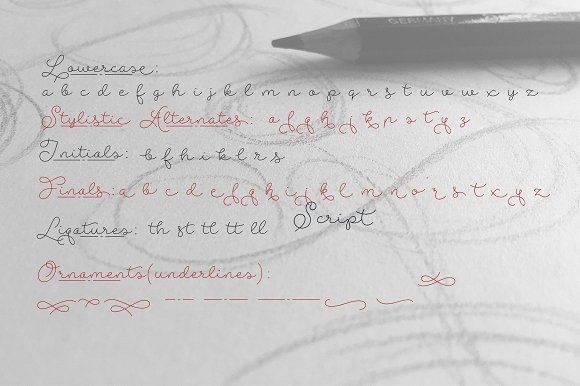 GERMANY
Lowercase:
a b c d e f g h i j k l m n o p q r s t u v w x y z
Stylistic Alternates: a f g h j k n s t y z
Initials: b f h i k l r s
Finals: a b c d e f g h i j k l m n o r s t x y z
Ligatures: th st tl tt ll
Script
Ornaments(underlines):